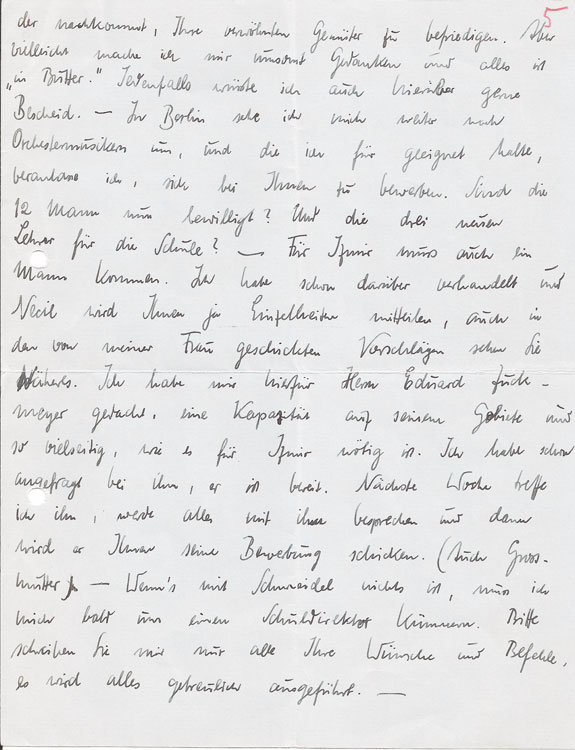 5
der nachkommt, Ihre verwöhnten Gemüter zu befriedigen. Aber
vielleicht mache ich mir umsonst Gedanken und alles ist
„in Butter." Jedenfalls wüsste ich auch hierüber gerne
Bescheid. — In Berlin sehe ich mich weiter nach
Orchestermusikern um, und die ich für geeignet halte,
veranlasse ich, sich bei Ihnen zu bewerben. Sind die
12 Mann nun bewilligt? Und die drei neuen
Lehrer für die Schule? — Für Izmir muss auch ein
Mann kommen. Ich habe schon darüber verhandelt und
Necil wird Ihnen ja Einzelheiten mitteilen, auch in
den von meiner Frau geschickten Vorschlägen sehen Sie
Näheres. Ich habe mir hierfür Herrn Eduard Zuck-
meyer gedacht, eine Kapazität auf seinem Gebiete und
so vielseitig, wie es für Izmir nötig ist. Ich habe schon
angefragt bei ihm, er ist bereit. Nächste Woche treffe
ich ihn, werde alles mit ihm besprechen und dann
wird er Ihnen seine Bewerbung schicken. (Auch Gross-
mutter) — Wenn's mit Schmeidel nichts ist, muss ich
mich bald um einen Schuldirektor kümmern. Bitte
schreiben Sie mir nur alle Ihre Wünsche und Befehle,
es wird alles getreulich ausgeführt. —